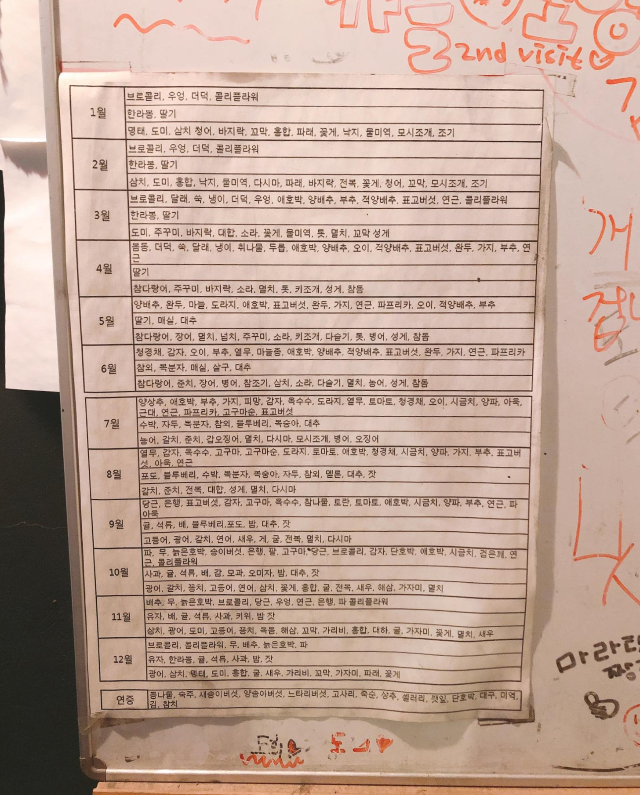 2nd visit
1월
브로콜리, 우엉, 더덕, 콜리플라워
한라봉, 딸기
명태, 도미, 삼치 청어, 바지락, 꼬막, 홍합, 파래, 꽃게, 낙지, 물미역, 모시조개, 조기
2월
브로콜리, 우엉, 더덕, 콜리플라워
한라봉, 딸기
삼치, 도미, 홍합, 낙지, 물미역, 다시마, 파래, 바지락, 전복, 꽃게, 청어, 꼬막, 모시조개, 조기
3월
브로콜리, 달래, 쑥, 냉이, 더덕, 우엉, 애호박, 양배추, 부추, 적양배추, 표고버섯, 연근, 콜리플라워
한라봉, 딸기
도미, 주꾸미, 바지락, 대합, 소라, 꽃게, 물미역, 톳, 멸치, 꼬막 성게
4월
봄동, 더덕, 쑥, 달래, 냉이, 취나물, 두릅, 애호박, 양배추, 오이, 적양배추, 표고버섯, 완두, 가지, 부추, 연
근
딸기
참다랑어, 주꾸미, 바지락, 소라, 멸치, 톳, 키조개, 성게, 참돔
5월
양배추, 완두, 마늘, 도라지, 애호박, 표고버섯, 완두, 가지, 연근, 파프리카, 오이, 적양배추, 부추
딸기, 매실, 대추
참다랑어, 장어, 멸치, 넙치, 주꾸미, 소라, 키조개, 다슬기, 톳, 병어, 성게, 참돔
6월
청경채, 감자, 오이, 부추, 열무, 마늘종, 애호박, 양배추, 적양배추, 표고버섯, 완두, 가지, 연근, 파프리카
참외, 복분자, 매실, 살구, 대추
참다랑어, 준치, 장어, 병어, 참조기, 삼치, 소라, 다슬기, 멸치, 농어, 성게, 참돔
7월
양상추, 애호박, 부추, 가지, 피망, 감자, 옥수수, 도라지, 열무, 토마토, 청경채, 오이, 시금치, 양파, 아욱,
근대, 연근, 파프리카, 고구마순, 표고버섯
수박, 자두, 복분자, 참외, 블루베리, 복숭아, 대추
농어, 갈치, 준치, 갑오징어, 멸치, 다시마, 모시조개, 병어, 오징어
8월
열무, 감자, 옥수수, 고구마, 고구마순, 도라지, 토마토, 애호박, 청경채, 시금치, 양파, 가지, 부추, 표고버
섯, 아욱, 연근
포도, 블루베리, 수박, 복분자, 복숭아, 자두, 참외, 멜론, 대추, 잣
갈치, 준치, 전복, 대합, 성게, 멸치, 다시마
9월
당근, 은행, 표고버섯, 감자, 고구마, 옥수수, 참나물, 토란, 토마토, 애호박, 시금치, 양파, 부추, 연근, 파
아욱
귤, 석류, 배, 블루베리,포도, 밤, 대추, 잣
고등어, 광어, 갈치, 연어, 새우, 게, 굴, 전복, 멸치, 다시마
10월
파, 무, 늙은호박, 송이버섯, 은행, 팥, 고구마, 당근, 브로콜리, 감자, 단호박, 애호박, 시금치, 검은깨, 연
근, 콜리플라워
사과, 귤, 석류, 배, 감, 모과, 오미자, 밤, 대추, 잣
광어, 갈치, 꽁치, 고등어, 연어, 삼치, 꽃게, 홍합, 굴, 전복, 새우, 해삼, 가자미, 멸치
11월
배추, 무, 늙은호박, 브로콜리, 당근, 우엉, 연근, 은행, 파 콜리플라워
유자, 배, 귤, 석류, 사과, 키위, 밤, 잣
삼치, 광어, 도미, 고등어, 꽁치, 옥돔, 해삼, 꼬막, 가리비, 홍합, 대하, 굴, 가자미, 꽃게, 멸치, 새우
12월
브로콜리, 콜리플라워, 무, 배추, 늙은호박, 파
유자, 한라봉, 귤, 석류, 사과, 밤, 잣
광어, 삼치, 명태, 도미, 홍합, 굴, 새우, 가리비, 꼬막, 가자미, 파래, 꽃게
연중
콩나물, 숙주, 새송이버섯, 양송이버섯, 느타리버섯, 고사리, 죽순, 상추, 샐러리, 깻잎, 단호박, 대구, 미역,
김, 참치
개
마라